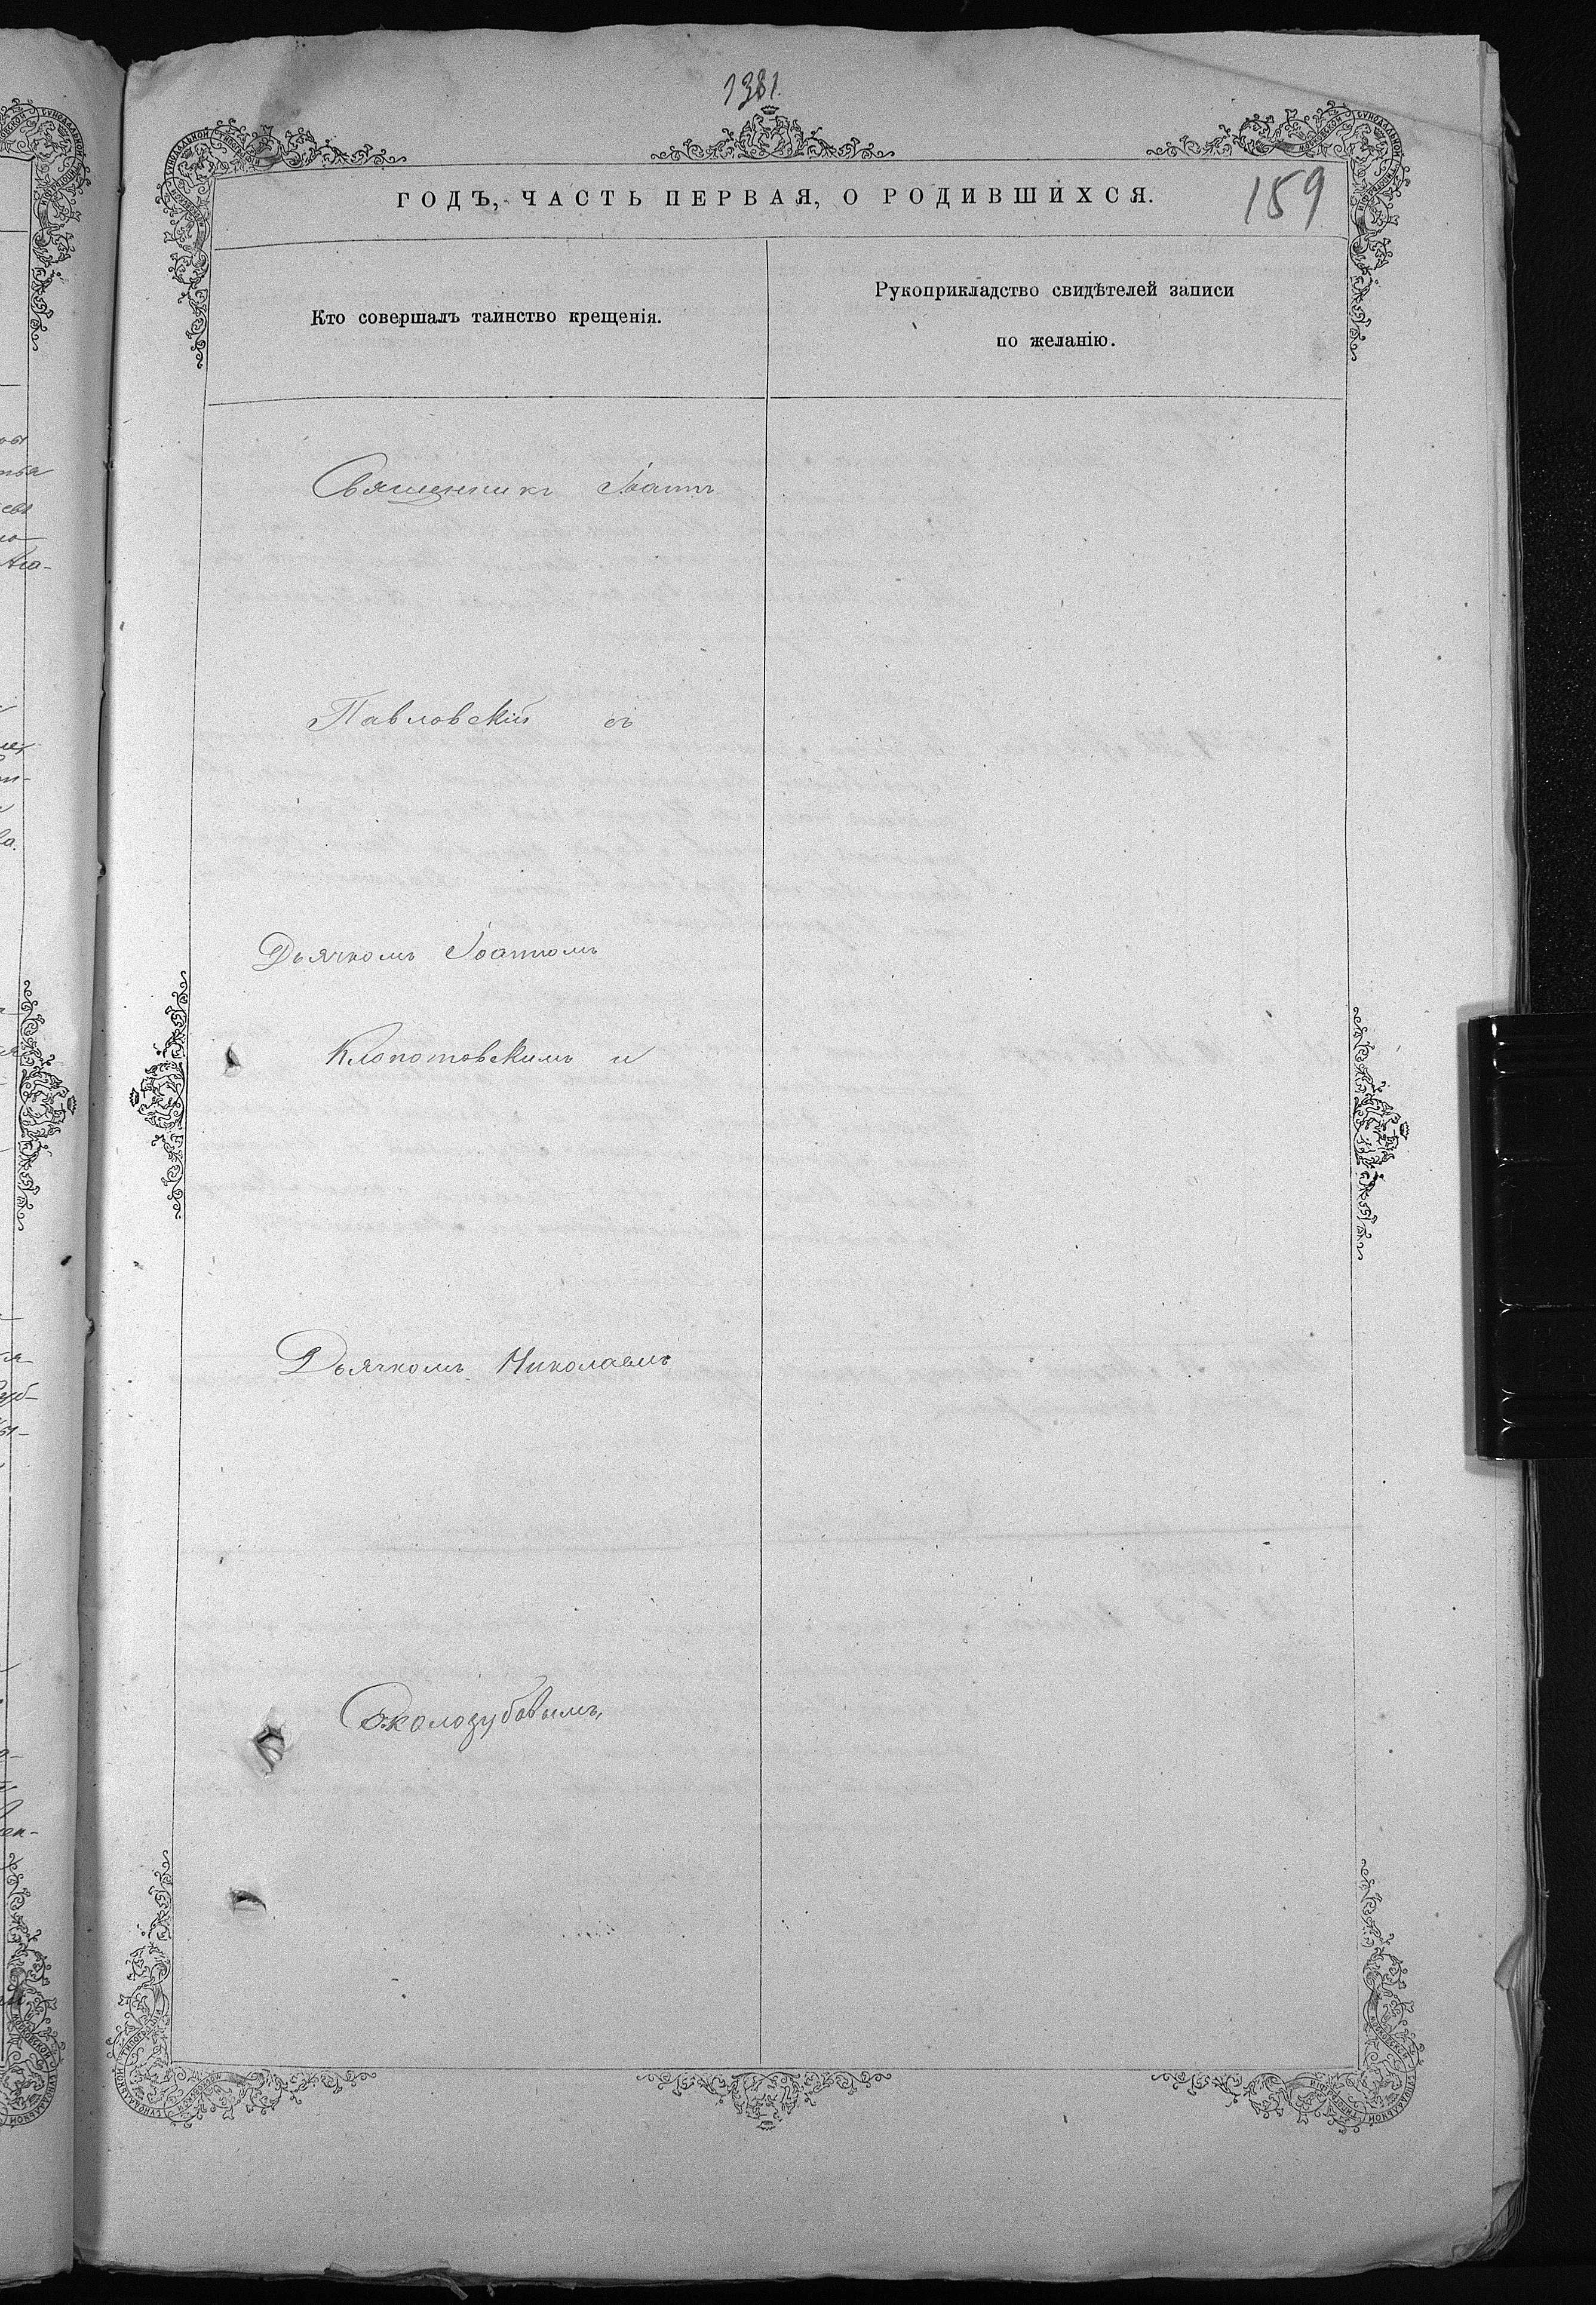 1381.
ГОДЪ, ЧАСТЬ ПЕРВАЯ, О РОДИВШИХСЯ.
159
Кто совершалъ таинство крещенія.
Рукоприкладство свидѣтелей записи
по желанію.
Священникъ Іоаннъ
Павловскій съ
Дьячкомъ Іоанномъ
Клопотовскимъ и
Дьячкомъ Николаемъ
Околозубовымъ,